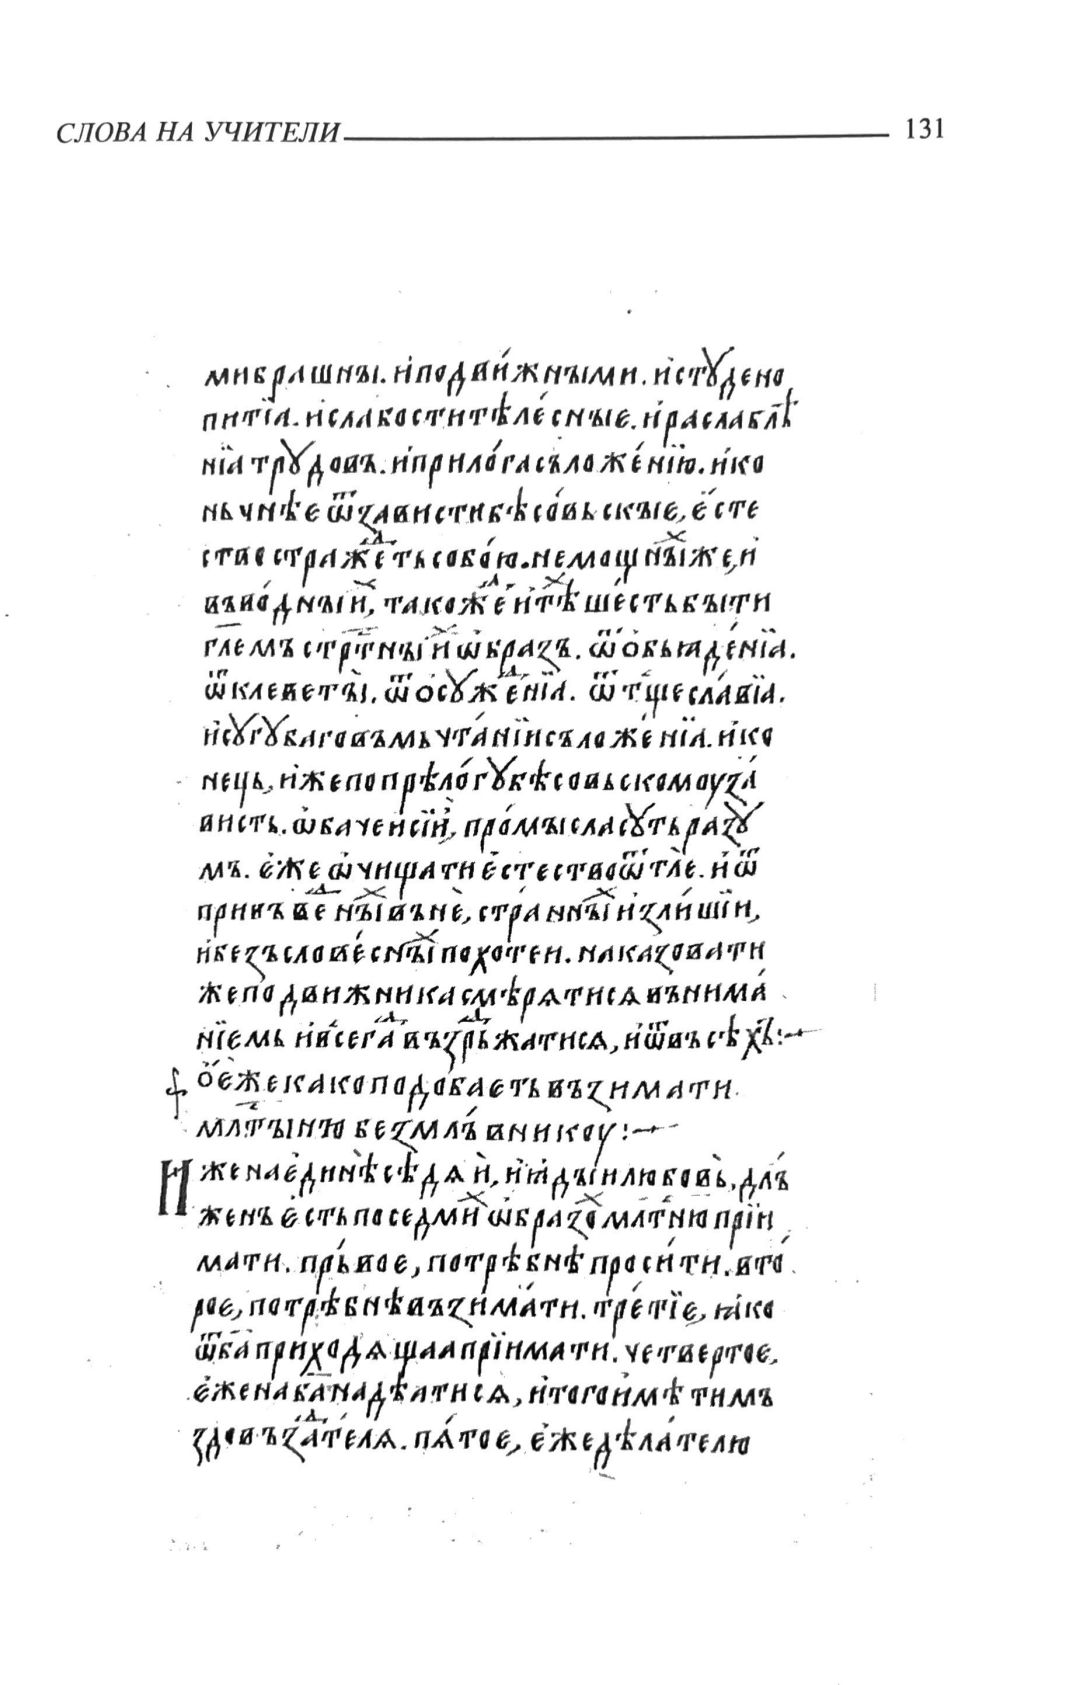 СЛОВА НА УЧИТЕЛИ 131
ми брашны. и҆ подви́жными. и҆ стꙋдено
питїа. и҆ слабости тѣле́сные. и҆ раслаблѣ
нїа трꙋдовъ. и҆ прило́га съложе́нїю. и҆ ко
ньчнѣе ѿ зависти бѣсо́вьскые, є҆сте
ство стражеⷣть собо́ю. немощныⷯ же, и҆
въво́дныⷯ и҆, такожеⷣ и҆ тѣⷯ ше́сть быти
гл҃емъ стрⷭтныⷯ и҆ ѡ҆бразъ. ѿ ѻ҆бьꙗде́нїа.
ѿ клеветы̀. ѿ ѻ҆сꙋжеⷣнїа. ѿ тщесла́вїа.
и҆ сꙋгꙋбаго въмьчта́нїи съложе́нїа. и҆ ко
нець, и҆же по прѣло́гꙋ бѣсовьскомоу за́
висть. ѡ҆баче и҆ сїи҆, про́мысла сꙋть ра́зꙋ
мъ. є҆же ѡ҆чищати є҆стество ѿ тлѐ. и҆ ѿ
привъвеⷣныⷯ вънѐ, стра́нныⷯ и҆ злишїи,
и҆ безъслове́сныⷯ похотеи. наказовати
же подвижника смѣрѧтисѧ вънима́
нїемь и҆ всегаⷣ въздръⷤжатисѧ, и҆ ѿ въсѣхъ:
Ѻ҆ є҆же како подобаеть възимати
млⷭтыню безмлъ́вникоу:
Иже на є҆динѣ сѣдѧ и҆, и҆ ꙗ҆дыи любовь̀, длъ́
женъ є҆сть по седмиⷯ ѡ҆бразоⷯ млⷭтню прїи
мати. пръ́вое, потрѣбнѣ проси́ти. вто́
рое, потрѣбнѣ възима́ти. тре́тїе, ꙗ҆ко
ѿ б҃а приходѧщаа прїимати. четвертое,
є҆же на б҃а надѣатисѧ, и҆ того и҆мѣти мъ
здовъзаⷣтелѧ. пѧ́тое, є҆же дѣла́телю